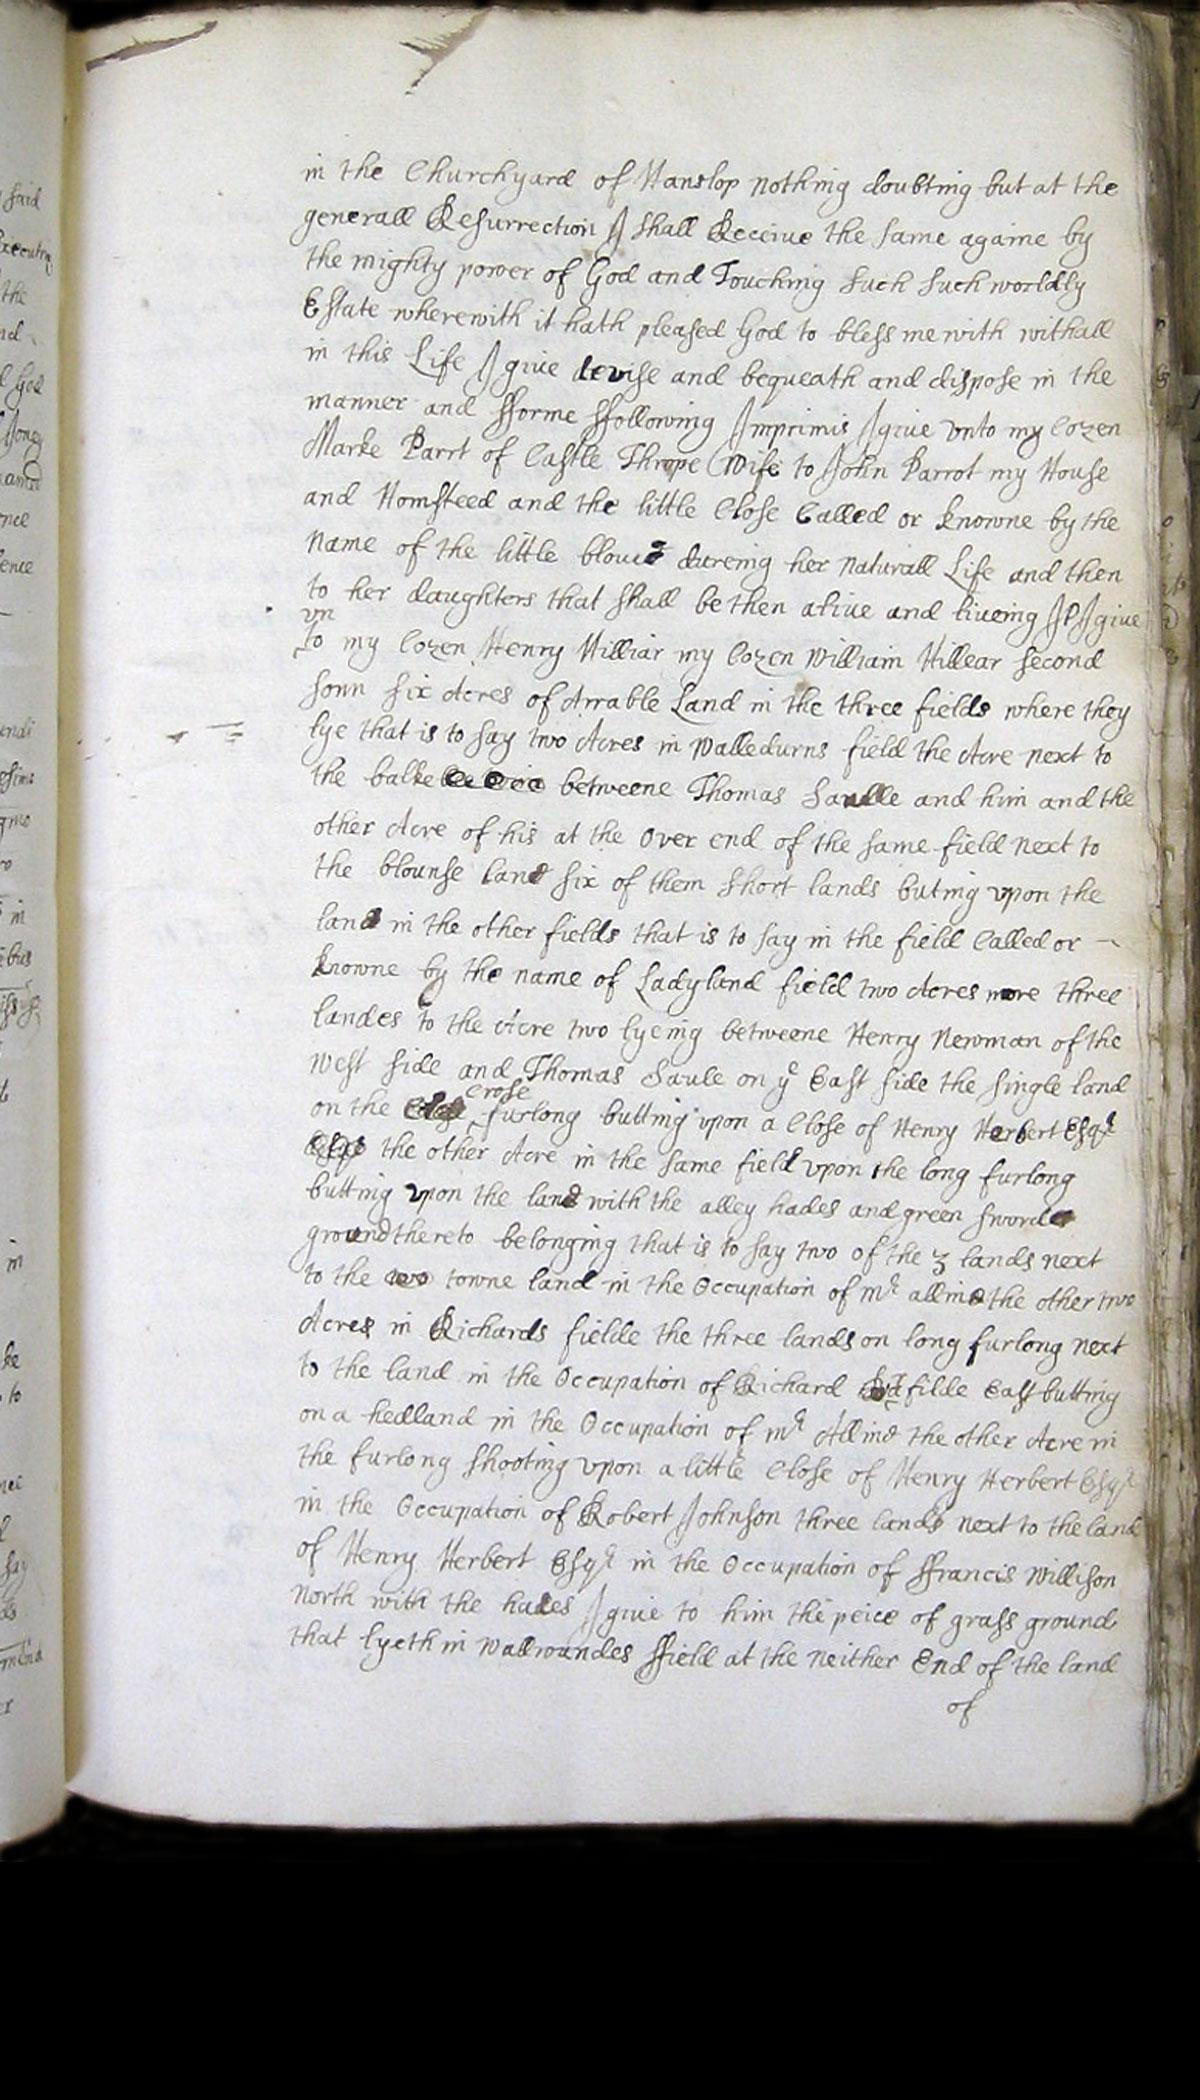 in the Churchyard of Hanslop nothing doubting but at the
generall Resurrection I shall Receive the same againe by
the mighty power of God and Touching such such worldly
Estate wherewith it hath pleased God to bless me with withall
in this Life I give devise and bequeath and dispose in the
manner and fforme ffollowing Imprimis I give vnto my Cozen
Marke Parrt of Castle Thrope Wife to John Parrot my House
and Homsteed and the little Close Called or knowne by the
name of the little dureing her naturall Life and then
to her daughters that shall be then alive and liveing I give
vn
to my Cozen Henry Hilliar my Cozen William Hillear second
sonn six Acres of Arrable Land in the three fields where they
lye that is to say two Acres in Walledurns field the Acre next to
the balke betweene Thomas Saulle and him and the
other Acre of his at the over end of the same field next to
the blounse land six of them short lands buting vpon the
land in the other fields that is to say in the field Called or
knowne by the name of Ladyland field two Acres more three
landes to the Acre two lyeing betweene Henry Newman of the
West side and Thomas Saule on ye East side the single land
Crose
on the furlong butting vpon a Close of Henry Herbert Esqr
the other Acre in the same field vpon the long furlong
butting vpon the land with the alley hades and green sword
ground thereto belonging that is to say two of the 3 lands next
to the towne land in the Occupation of mr allind the other two
Acres in Richards fielde the three lands on long furlong next
to the land in the Occupation of Richard East butting
on a hedland in the Occupation of mr Allind the other Acre in
the furlong shooting vpon a little Close of Henry Herbert Esqr
in the Occupation of Robert Johnson three lands next to the land
of Henry Herbert Esqr in the Occupation of ffrancis Willison
North with the hades I give to him the peice of grass ground
that lyeth in Wallroundes ffield at the neither End of the land
of